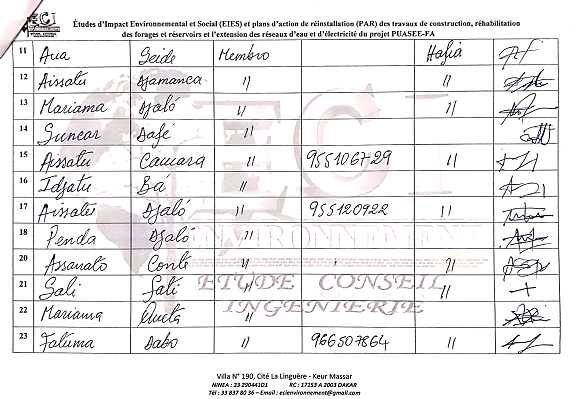 Études d'Impact Environnemental et Social (EIES) et plans d'action de réinstallation (PAR) des travaux de construction, réhabilitation
des forages et réservoirs et l'extension des réseaux d'eau et d'électricité du projet PUASEE-FA
11 Aua Seide Membro Hafia
12 Aissatu Djamanca 11 11
13 Mariama Djaló 11 11
14 Suncar Dafé 11
15 Aissatu Camara 11 955106729 11
16 Idjatu Bá 11
17 Aissatu Djaló 11 955120922 11
18 Penda Djaló 11
20 Assanato Conté 11 11
21 Sali Sati 11 11 +
22 Mariama 11
23 Fatuma Dabo 11 966507864 11
ECI
ENVIRONNEMENT
ETUDE CONSEIL
INGENIERIE
Villa N° 190, Cité La Linguère - Keur Massar
NINEA : 23 290441D1 RC : 17153 A 2003 DAKAR
Tél : 33 837 80 36 – Email : ecienvironnement@gmail.com